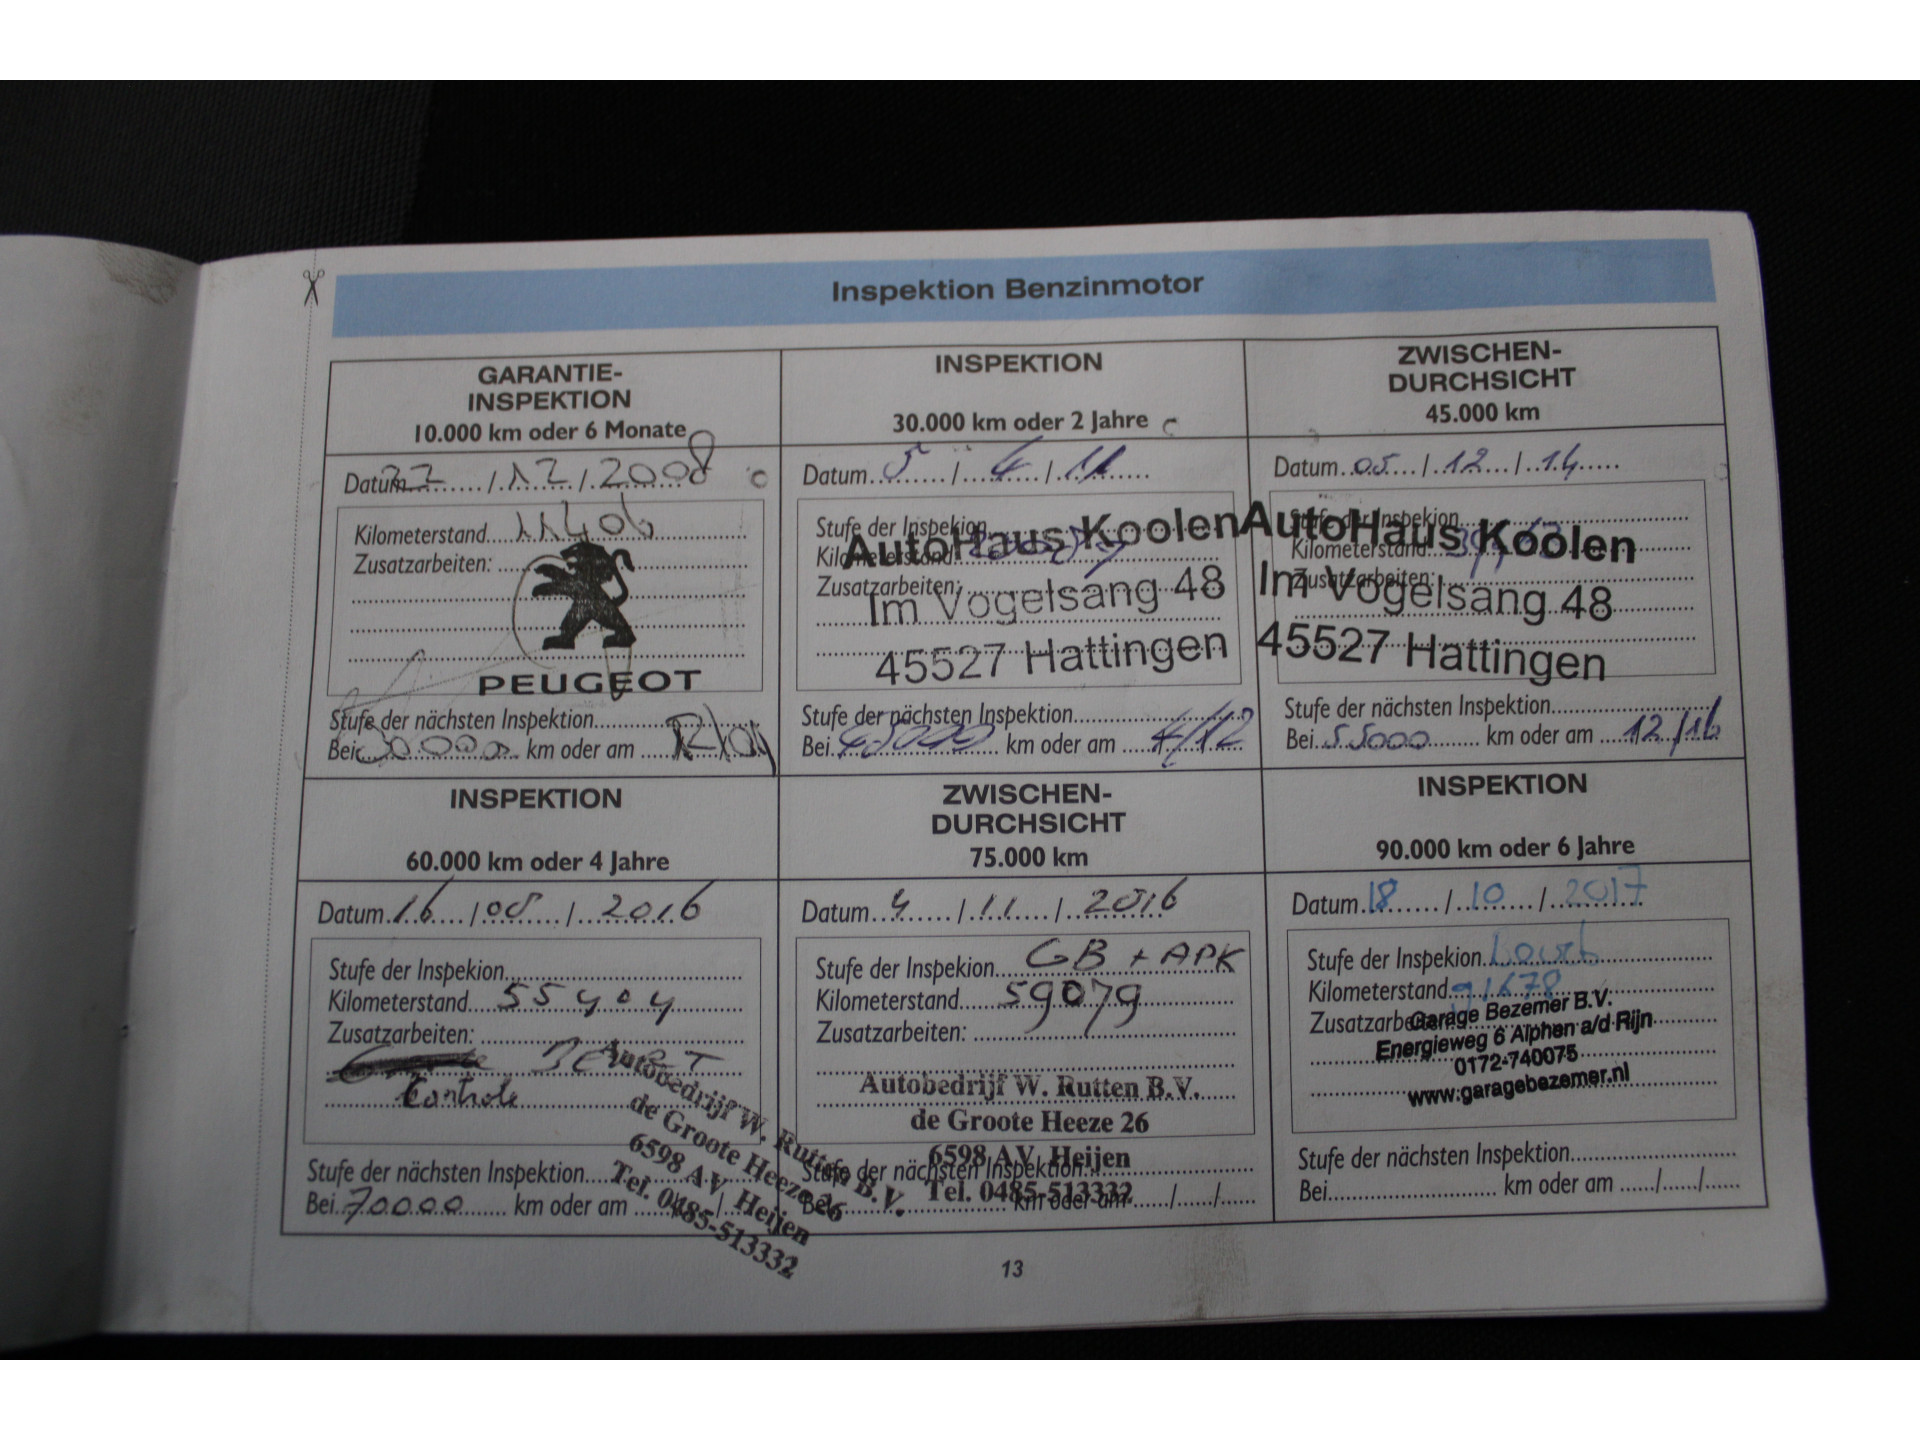 Inspektion Benzinmotor
GARANTIE-
INSPEKTION
10.000 km oder 6 Monate
Datum / 12 / 2008
Kilometerstand
Zusatzarbeiten:
PEUGEOT
Stufe der nächsten Inspektion
Bei 30.000 km oder am
INSPEKTION
30.000 km oder 2 Jahre
Datum 5 / 4 / 11
Stufe der Inspekion
Kilometerstand
Zusatzarbeiten:
AutoHaus Koolen
Im Vogelsang 48
45527 Hattingen
Stufe der nächsten Inspektion
Bei 45000 km oder am 4/12
ZWISCHEN-
DURCHSICHT
45.000 km
Datum 05 / 12 / 14
Stufe der Inspekion
Kilometerstand
Zusatzarbeiten:
AutoHaus Koolen
Im Vogelsang 48
45527 Hattingen
Stufe der nächsten Inspektion
Bei 55000 km oder am 12/16
INSPEKTION
60.000 km oder 4 Jahre
Datum 16 / / 2016
Stufe der Inspekion
Kilometerstand 55404
Zusatzarbeiten:
Controle
Autobedrijf W. Rutten B.V.
de Groote Heeze 26
6598 AV Heijen
Tel. 0485-513332
Stufe der nächsten Inspektion
Bei 70000 km oder am
ZWISCHEN-
DURCHSICHT
75.000 km
Datum 4 / 11 / 2016
Stufe der Inspekion GB + APK
Kilometerstand 59079
Zusatzarbeiten:
Autobedrijf W. Rutten B.V.
de Groote Heeze 26
6598 AV Heijen
Tel. 0485-513332
Stufe der nächsten Inspektion
Bei km oder am / /
INSPEKTION
90.000 km oder 6 Jahre
Datum 18 / 10 / 2017
Stufe der Inspekion
Kilometerstand 91678
Zusatzarbeiten:
Garage Bezemer B.V.
Energieweg 6 Alphen a/d Rijn
0172-740075
www.garagebezemer.nl
Stufe der nächsten Inspektion
Bei km oder am / /
13